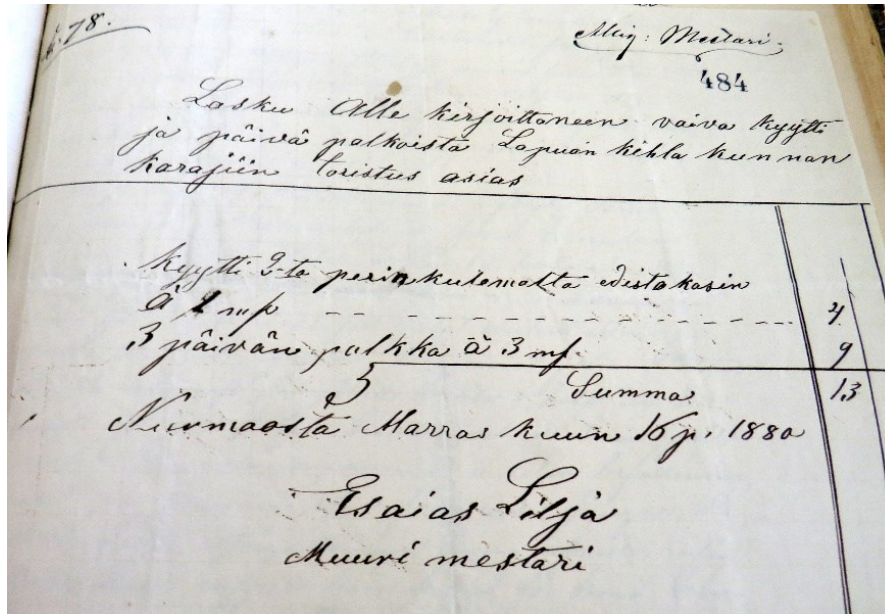 78.
Mestari.
484
Lasku Alle kirjoittaneen vaiva kyytti
ja päivä palkoista Lapuan kihla kunnan
karajiin toristus asias
Kyytti 2-ta perinkulematta edistakasin
à 2 mp 4
3 päivän palkka à 3 mp. 9
Summa 13
Nurmoosta Marras kuun 16 p. 1880
Esaias Lilja
Muuri mestari